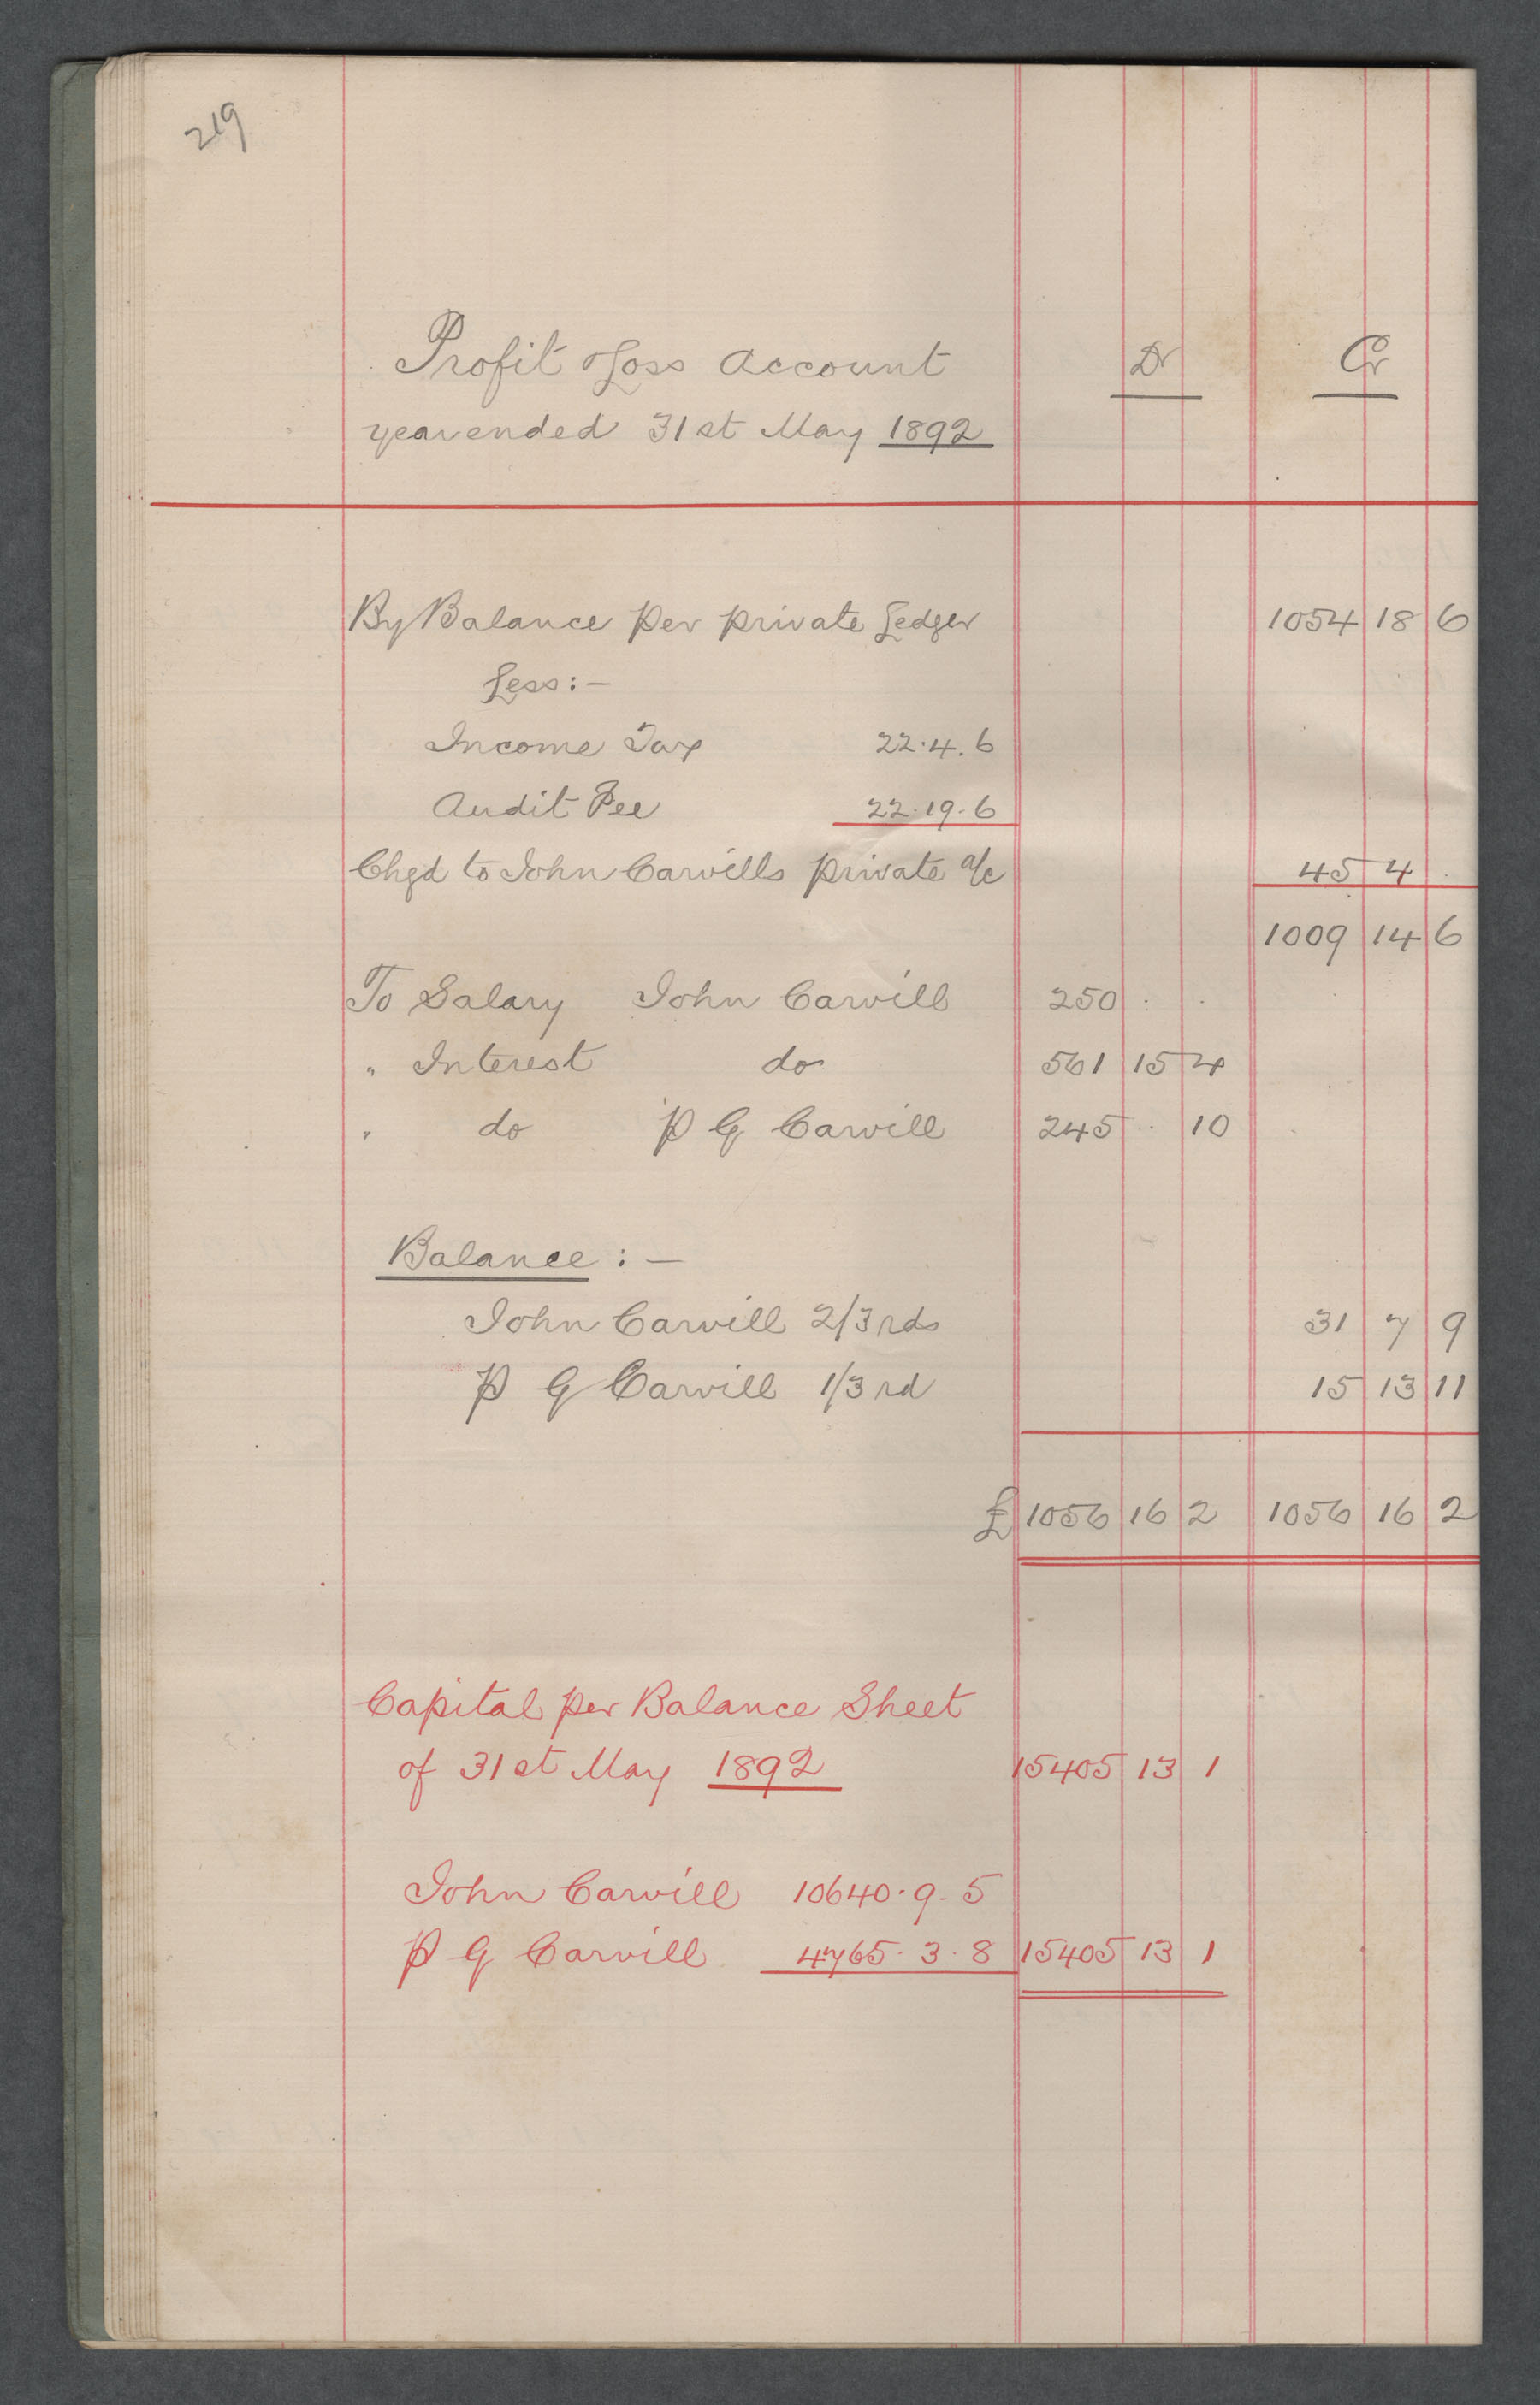 219
Profit & Loss Account Dr Cr
year ended 31st May 1892
By Balance per private Ledger 1054 18 6
Less:-
Income Tax 22.4.6
Audit Fee 22.19.6
Chgd to John Carvills private a/c 45 4 .
1009 14 6
To Salary John Carvill 250 . .
" Interest do 561 15 4
" do P G Carvill 245 . 10
Balance:-
John Carvill 2/3rds 31 7 9
P G Carvill 1/3rd 15 13 11
£ 1056 16 2 1056 16 2
Capital per Balance Sheet
of 31st May 1892 15405 13 1
John Carvill 10640.9.5
P G Carvill 4765.3.8 15405 13 1